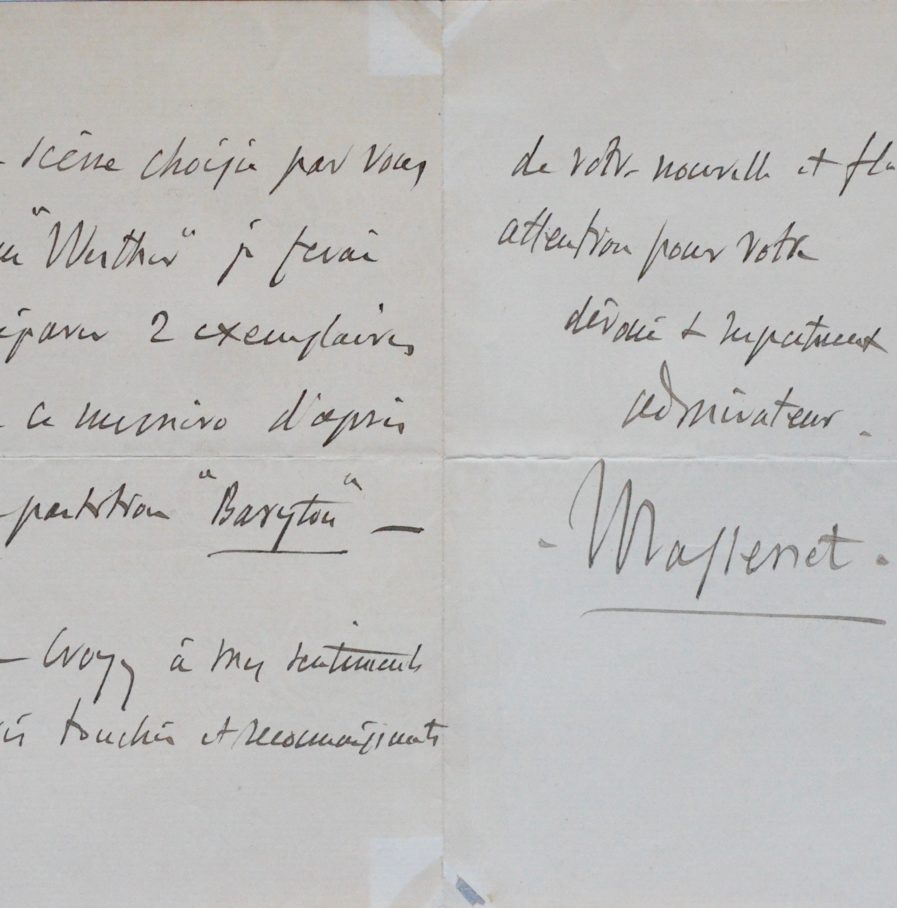 - scène choisie par vous
"Werther" je ferai
2 exemplaires
ce numéro d'après
partition "Baryton" —
— Croyez à mes sentiments
touchés et reconnaissants
de votre nouvelle et fla
attention pour votre
dévoué & impatient
admirateur.
- Massenet -